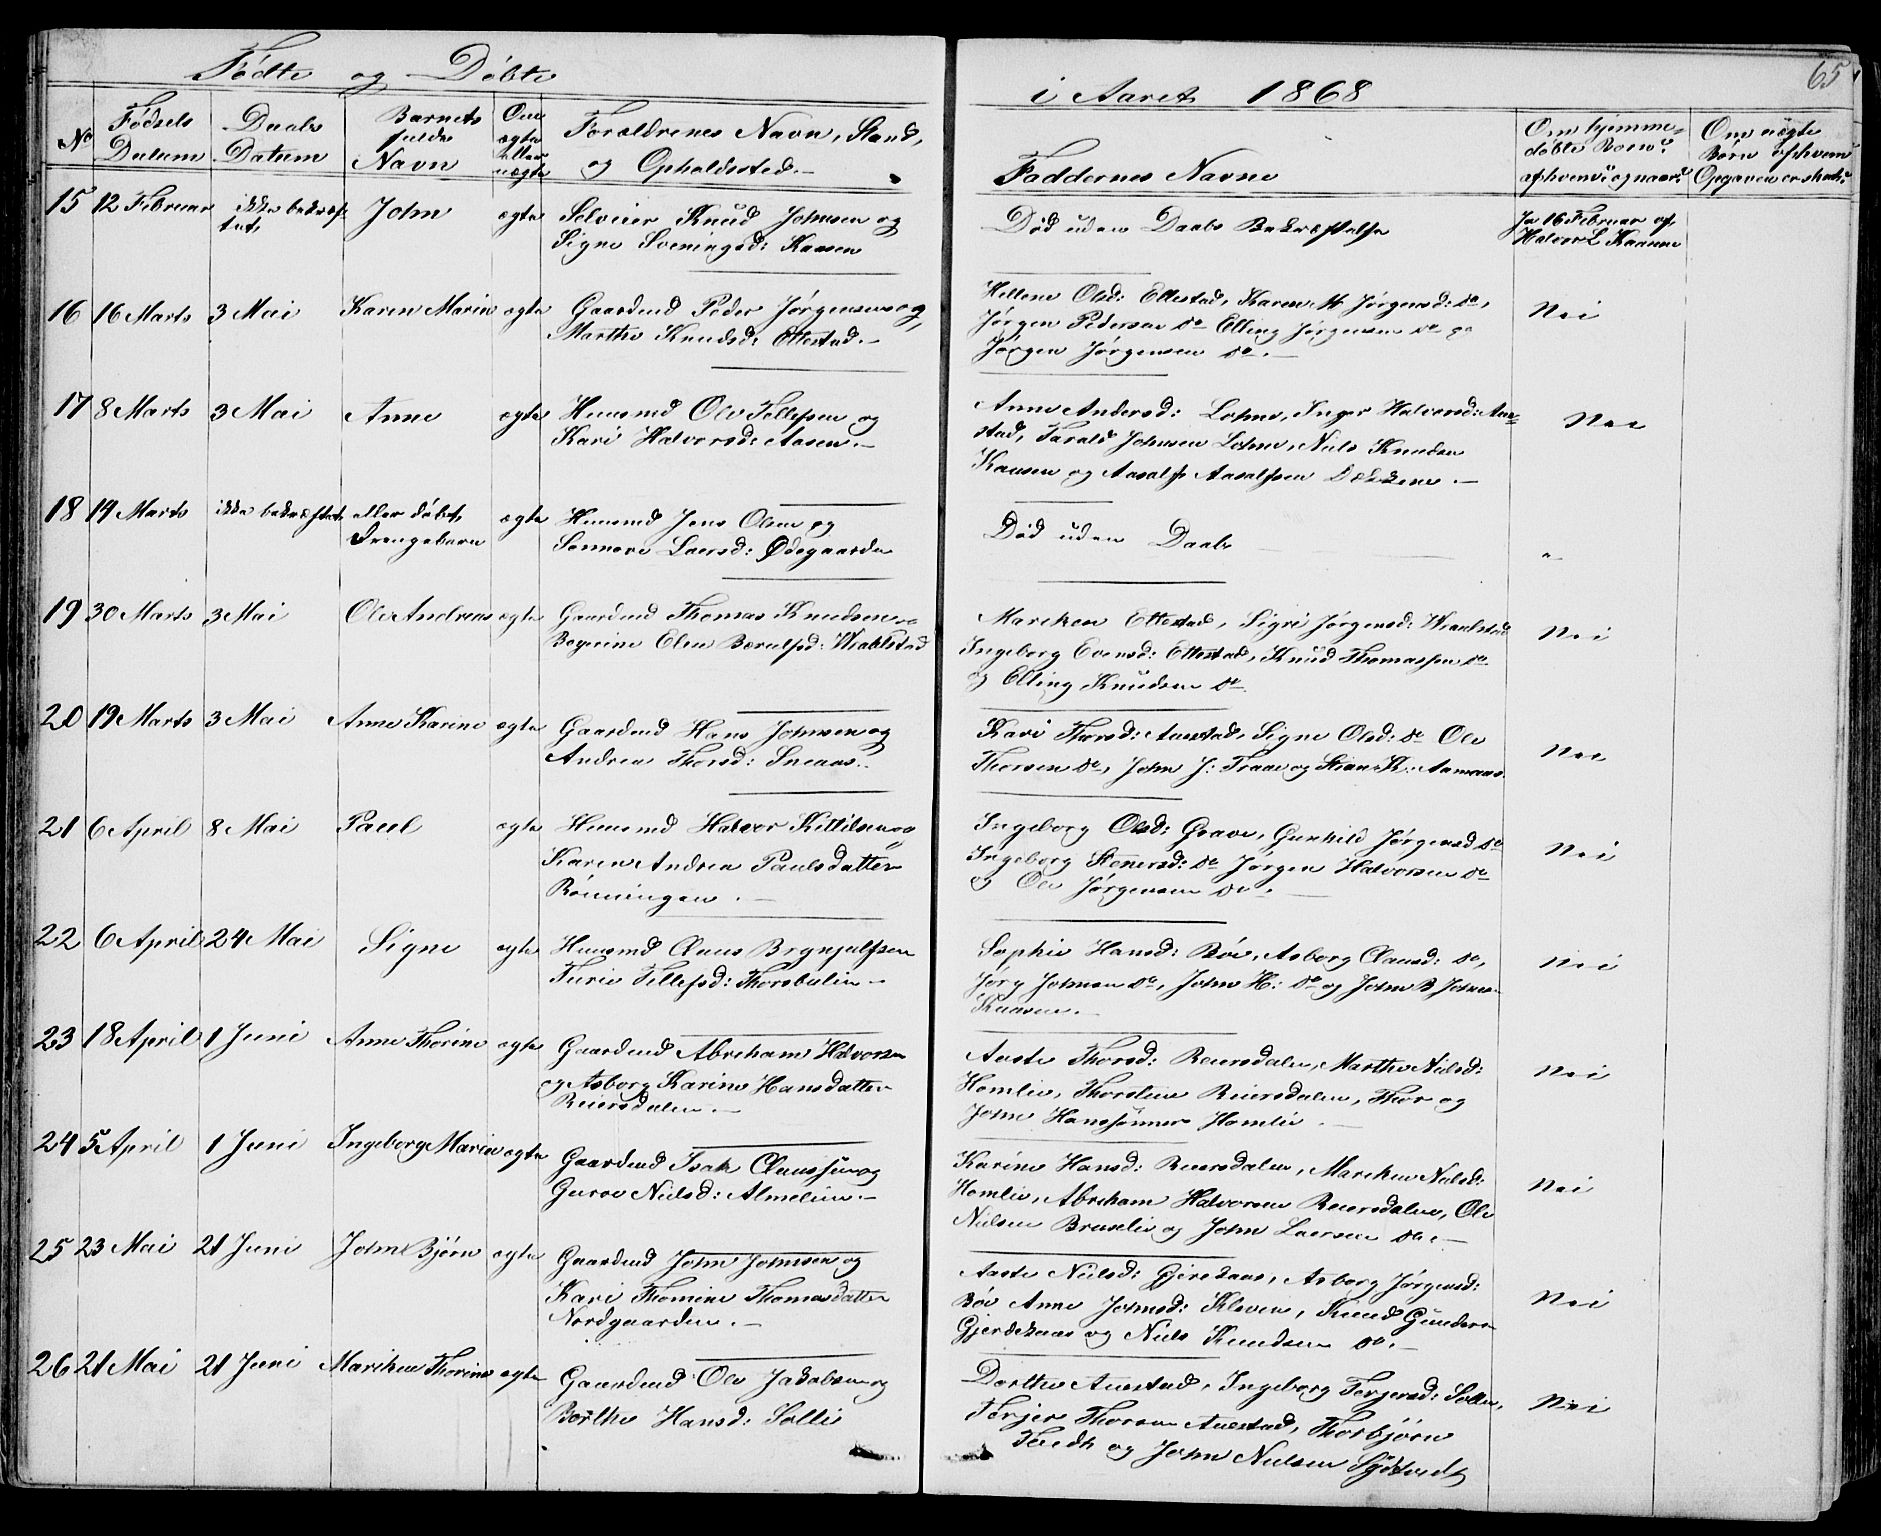 Fødte og Døbte
i Aaret 1868
65
No
Fødsels Datum
Daabs Datum
Barnets fulde Navn
Om ægte eller uægte
Forældrenes Navn, Stand, og Opholdssted.
Faddernes Navne
Om hjemmedøbte Børn
Om uægte Børn
15 12 Februar ikke bekræftet John ægte
Selveier Knud Johnsen og
Signe Sveningsd: Kaasen
Død uden Daabs Bekræftelse
Ja 16 Februar af
Halvor L Kaasene
16 16 Marts 3 Mai Karen Marie ægte
Gaardmd Peder Jørgensen og
Marthe Knudsd: Ettestad.
Hellene Olsd: Ettestad, Karen M Jørgensd: do,
Jørgen Pedersen do Elling Jørgensen do og
Jørgen Jørgensen do.
Nei
17 8 Marts 3 Mai Anne ægte
Huusmd Ole Tellefsen og
Kari Halvorsd: Aasen.
Anne Andersd: Lohne, Inger Halvorsd: Aae-
stad, Tarald Johnsen Lohne, Niels Knudsen
Kaasen og Aasulf Aasulfsen
Nei
18 14 Marts ikke bekræftet eller døbt, Drengebarn ægte
Huusmd Jens Olsen og
Sennove Laersd: Ødegaarden
Død uden Daab
19 30 Marts 3 Mai Ole Andreas ægte
Gaardmd Thomas Knudsen og
Elen
Mariken Ettestad, Sigri Jørgensd:
Ingeborg Evensd: Ettestad, Knud Thomassen do
og Elling Knudsen do
Nei
20 19 Marts 3 Mai Anne Karine ægte
Gaardmd Hans Johnsen og
Andrea Thorsd: Sneaas.
Kari Thorsd: Auestad, Signe Olsd: do Ole
Thorsen do, John J: Traae og Stian K: Aamaas.
Nei
21 6 April 8 Mai Paul ægte
Huusmd Halvor Kittilsen og
Karen Andrea Paulsdatter
Rønningen.
Ingeborg Olsd: Grave, Gunhild Jørgensd do
Ingeborg Stenersd: do Jørgen Halvorsen do
og Ole Jørgensen do.
Nei
22 6 April 24 Mai Signe ægte
Huusmd Claus Brynjulfsen
Turie Tellefsd: Thorsbulien
Sophie Hansd: Bøe, Asborg Clausd: do,
Jørg Johnsen do, John H: do og John B Johnsen
Kaasen.
Nei
23 18 April 1 Juni Anne Thorine ægte
Gaardmd Abraham Halvorsen
og Asborg Karine Hansdatter
Reiersdalen.
Aaste Thorsd: Reiersdalen, Marthe Nielsd:
Homlie, Thorsten Reiersdalen, Thor og
John Hanssønner Homlie.
Nei
24 5 April 1 Juni Ingeborg Marie ægte
Gaardmd Isak Claussen og
Guroe Nielsd: Almelien.
Karine Hansd: Reiersdalen, Mariken Nielsd:
Homlie, Abraham Halvorsen Reiersdalen, Ole
Nielsen Bruselie og John Laersen do.
Nei
25 23 Mai 21 Juni John Bjørn ægte
Gaardmd John Johnsen og
Kari Thomine Thomasdatter
Nordgaarden.
Aaste Nielsd: Asborg Jørgensd:
Bøe Anne Johnsd: Kleven, Knud Gunders-
Gjerdekaas og Niels Knudsen do.
Nei
26 21 Mai 21 Juni Mariken Thorine ægte
Gaardmd Ole Jakobsen og
Borthe Hansd: Sollie
Dorthe Auestad, Ingeborg Terjersd: Sollie,
Terjer Thorsen Auestad, Thorbjørn
og John Nielsen Sydtvedt
Nei